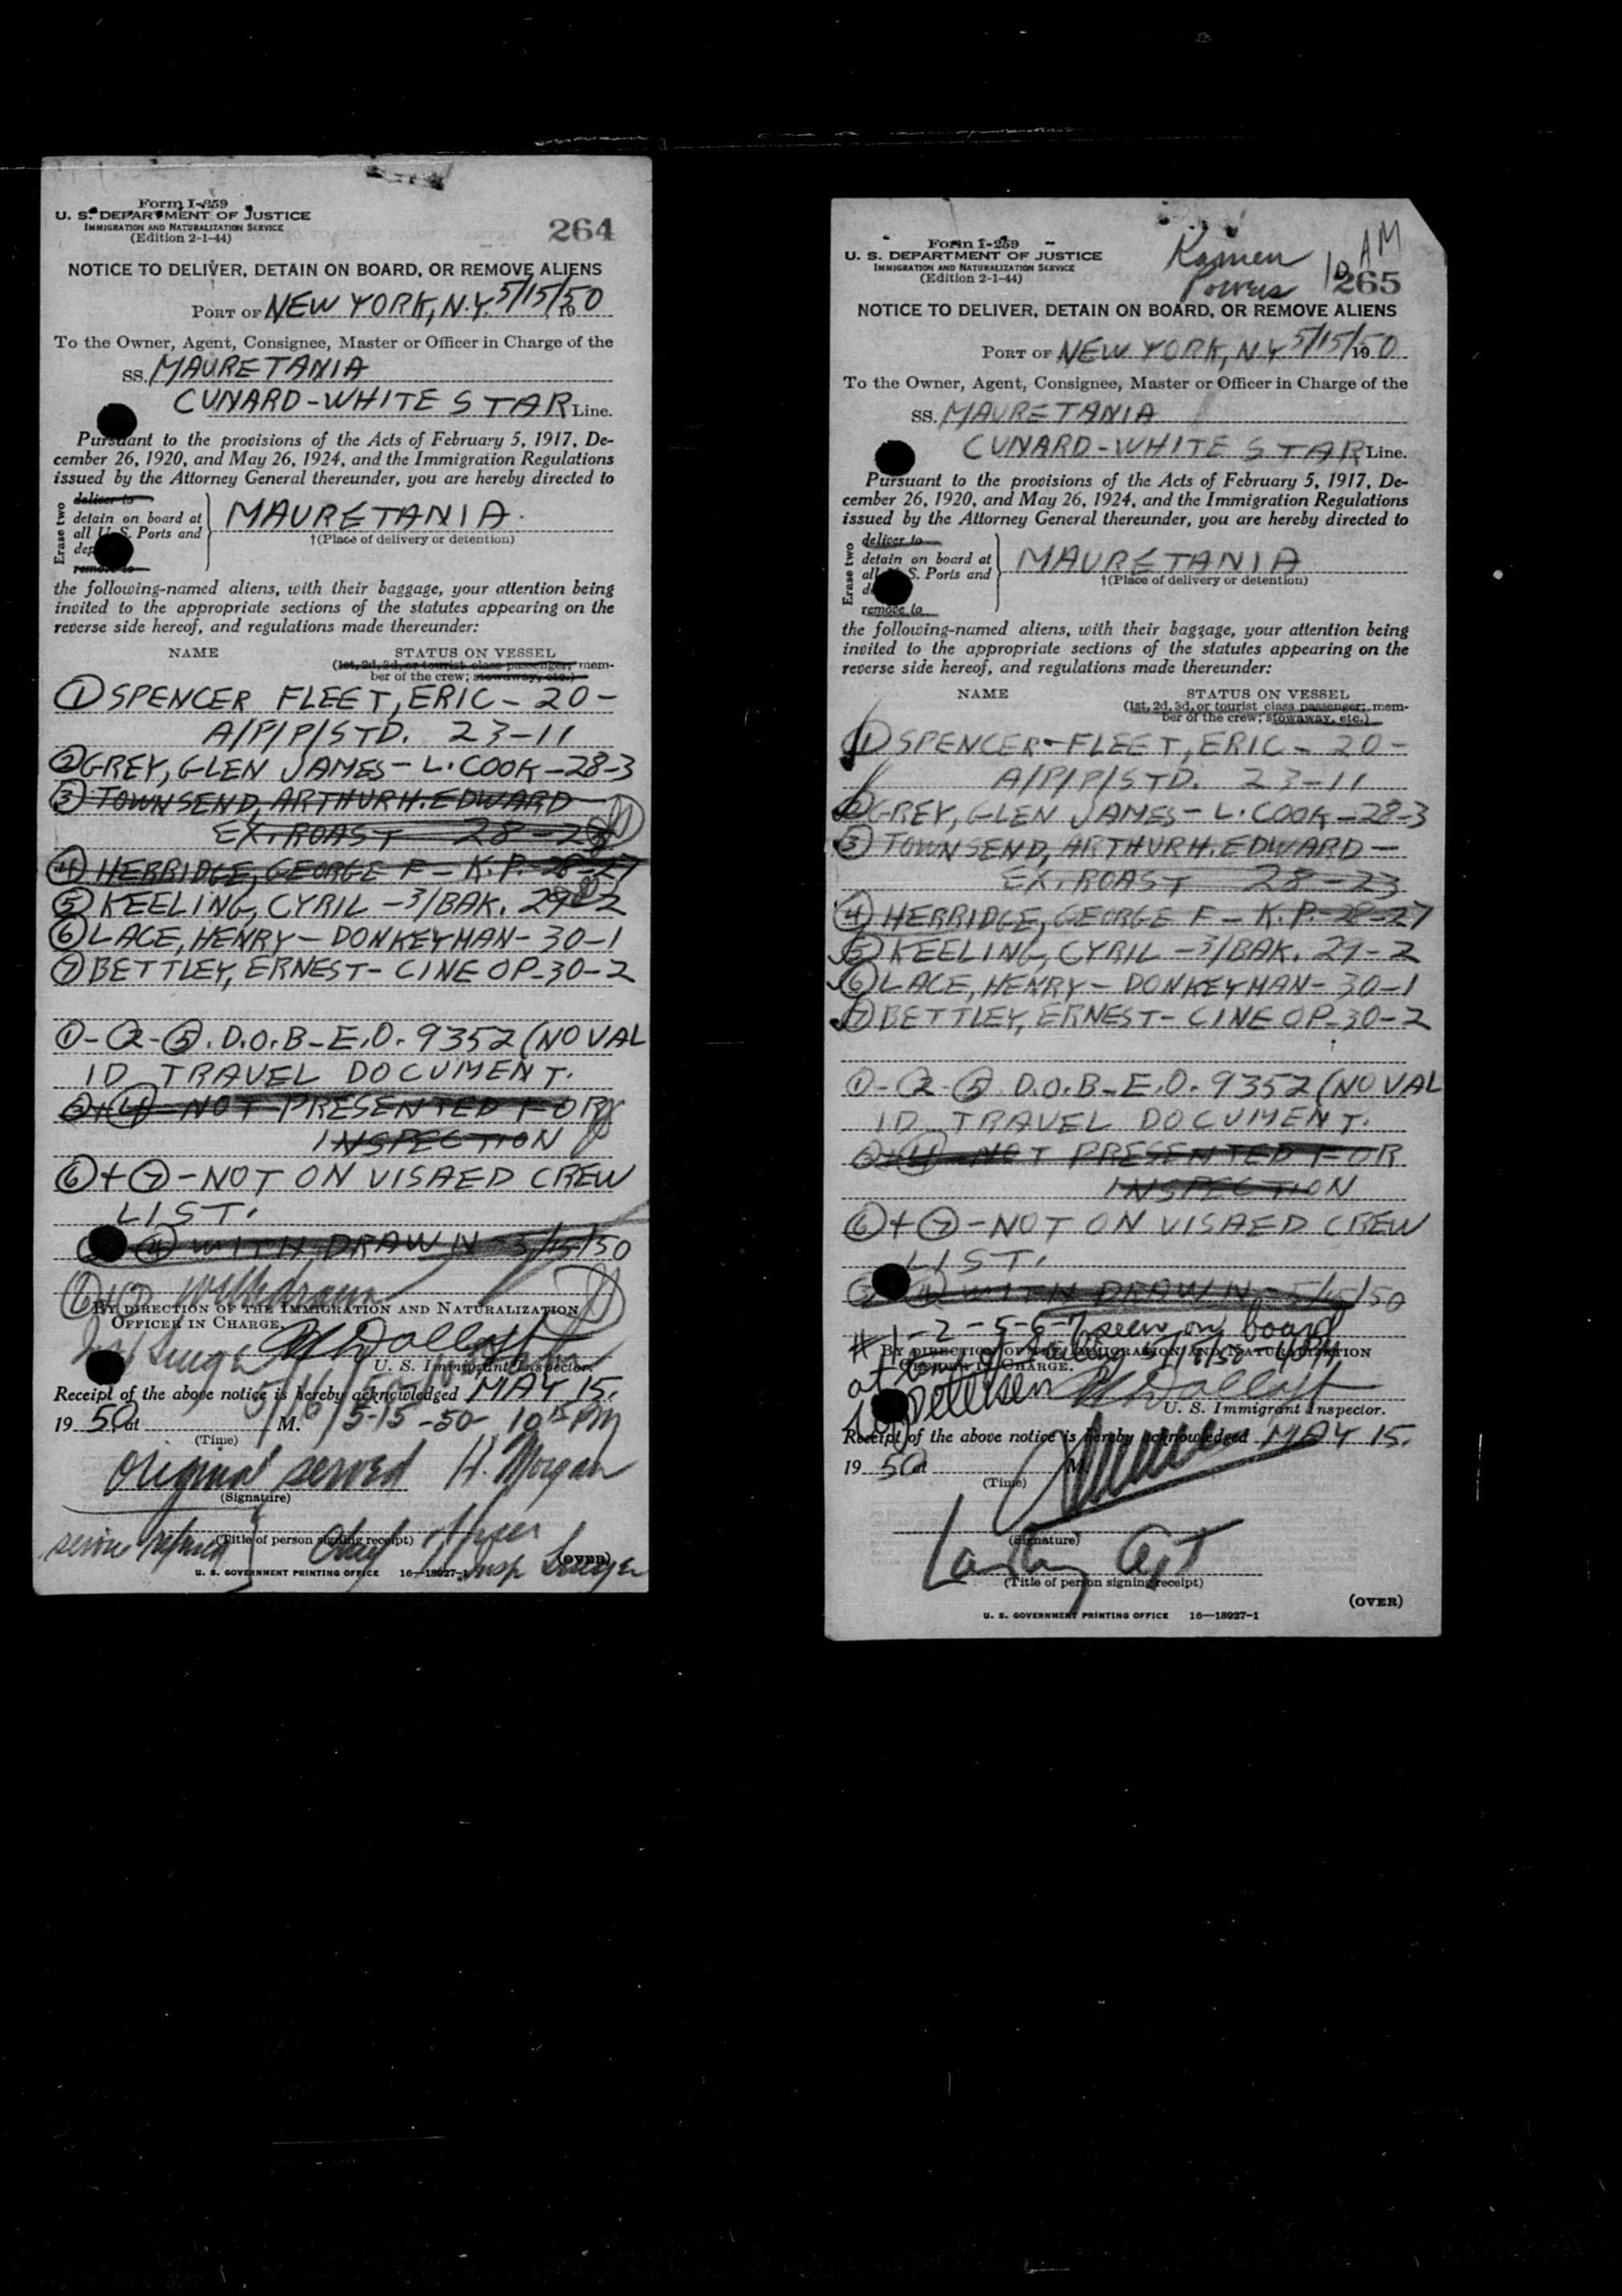 Form I-259
U. S. DEPARTMENT OF JUSTICE
IMMIGRATION AND NATURALIZATION SERVICE
(Edition 2-1-44)
264
NOTICE TO DELIVER, DETAIN ON BOARD, OR REMOVE ALIENS
PORT OF NEW YORK, N.Y. 5/15/1950
To the Owner, Agent, Consignee, Master or Officer in Charge of the
SS. MAURETANIA
CUNARD-WHITE STAR Line.
Pursuant to the provisions of the Acts of February 5, 1917, De-
cember 26, 1920, and May 26, 1924, and the Immigration Regulations
issued by the Attorney General thereunder, you are hereby directed to
Erase two
deliver to
detain on board at
all U. S. Ports and
remove to
MAURETANIA.
†(Place of delivery or detention)
the following-named aliens, with their baggage, your attention being
invited to the appropriate sections of the statutes appearing on the
reverse side hereof, and regulations made thereunder:
NAME STATUS ON VESSEL
(1st, 2d, 3d, or tourist class passenger; mem-
ber of the crew; stowaway, etc.)
① SPENCER FLEET, ERIC - 20 -
A/P/P/STD. 23-11
② GREY, GLEN JAMES - L. COOK - 28-3
③ TOWNSEND, ARTHUR H. EDWARD
EX. ROAST 28-23
④ HERRIDGE, GEORGE F - K.P. 28-27
⑤ KEELING, CYRIL - 3/BAK. 29-2
⑥ LACE, HENRY - DONKEYMAN - 30-1
⑦ BETTLEY, ERNEST - CINE OP - 30-2
① - ② - ⑤. D.O.B - E.O. 9352 (NO VAL
ID TRAVEL DOCUMENT.
③ + ④ NOT PRESENTED FOR
INSPECTION
⑥ + ⑦ - NOT ON VISAED CREW
LIST.
④ WITHDRAWN 5/15/50
Withdrawn
BY DIRECTION OF THE IMMIGRATION AND NATURALIZATION
OFFICER IN CHARGE.
U. S. Immigrant Inspector.
Receipt of the above notice is hereby acknowledged MAY 15.
1950 at M. 5-15-50 10 PM
(Time)
Original served H. Morgan
(Signature)
(Title of person signing receipt)
Insp
(OVER)
U. S. GOVERNMENT PRINTING OFFICE 16—18927-1
Form I-259
U. S. DEPARTMENT OF JUSTICE
IMMIGRATION AND NATURALIZATION SERVICE
(Edition 2-1-44)
Kamen
Powers
10 AM
265
NOTICE TO DELIVER, DETAIN ON BOARD, OR REMOVE ALIENS
PORT OF NEW YORK, N.Y. 5/15/1950
To the Owner, Agent, Consignee, Master or Officer in Charge of the
SS. MAURETANIA
CUNARD-WHITE STAR Line.
Pursuant to the provisions of the Acts of February 5, 1917, De-
cember 26, 1920, and May 26, 1924, and the Immigration Regulations
issued by the Attorney General thereunder, you are hereby directed to
Erase two
deliver to
detain on board at
all U. S. Ports and
remove to
MAURETANIA
†(Place of delivery or detention)
the following-named aliens, with their baggage, your attention being
invited to the appropriate sections of the statutes appearing on the
reverse side hereof, and regulations made thereunder:
NAME STATUS ON VESSEL
(1st, 2d, 3d, or tourist class passenger; mem-
ber of the crew; stowaway, etc.)
① SPENCER-FLEET, ERIC - 20 -
A/P/P/STD. 23-11
② GREY, GLEN JAMES - L. COOK - 28-3
③ TOWNSEND, ARTHUR H. EDWARD -
EX. ROAST 28-23
④ HERRIDGE, GEORGE F - K.P. - 28-27
⑤ KEELING, CYRIL - 3/BAK. 29-2
⑥ LACE, HENRY - DONKEYMAN - 30-1
⑦ BETTLEY, ERNEST - CINE OP - 30-2
① - ② - ⑤ D.O.B - E.O. 9352 (NO VAL
ID TRAVEL DOCUMENT.
③ + ④ NOT PRESENTED FOR
INSPECTION
⑥ + ⑦ - NOT ON VISAED CREW
LIST.
③ ④ WITHDRAWN - 5/15/50
#1 - 2 - 5 - 6 - 7 seen on board
BY DIRECTION OF THE IMMIGRATION AND NATURALIZATION
OFFICER IN CHARGE.
at time of sailing
U. S. Immigrant Inspector.
Receipt of the above notice is hereby acknowledged MAY 15.
1950 at M.
(Time)
(Signature)
(Title of person signing receipt)
(OVER)
U. S. GOVERNMENT PRINTING OFFICE 16—18927-1